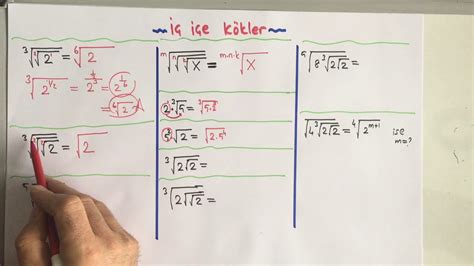 iç içe Kökler
³√√2 = ⁶√2
³√2^1/2 = = 2^1/6
= ⁶√2
³√√√2 = √2
ᵐ√ⁿ√ᵏ√x = ᵐ·ⁿ·ᵏ√x
2·³√5 = ³√5.8
³√2√2 =
³√2√√2 =
√8³√2√2 =
√4³√2√2 = ⁴√2^m+1 ise m=?